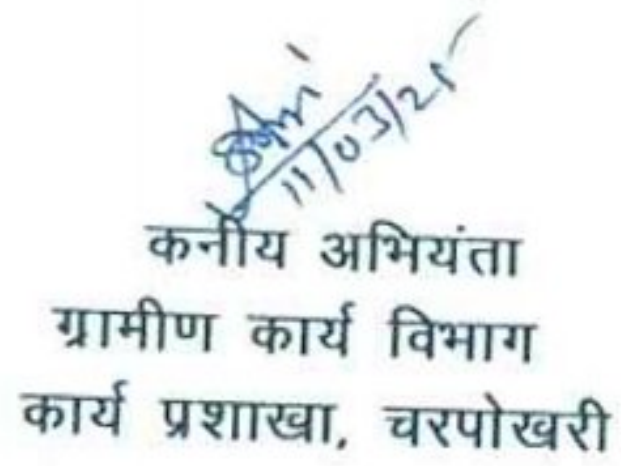 11/03/25
कनीय अभियंता
ग्रामीण कार्य विभाग
कार्य प्रशाखा, चरपोखरी